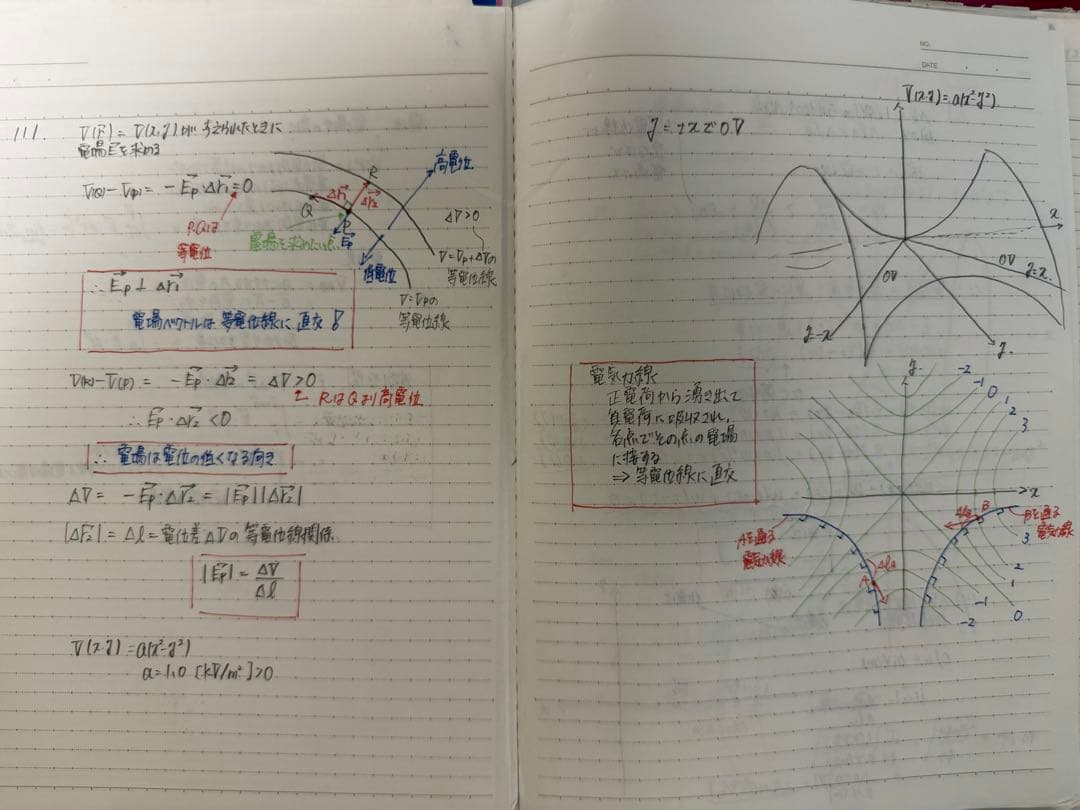 111.
V(r⃗) = V(x,y)が与えられたときに
電場E⃗を求める
V(Q)-V(P) = -E⃗p・Δr⃗1=0
PQは
等電位
Q
Δr⃗1
R
Δr⃗2
P
E⃗p
電場を求めたい点
高電位
低電位
ΔV>0
V=Vp+ΔVの
等電位線
V=Vpの
等電位線
∴ E⃗p⊥Δr⃗1
電場ベクトルは等電位線に直交!
V(R)-V(P) = -E⃗p・Δr⃗2 = ΔV>0
RはQより高電位
∴ E⃗p・Δr⃗2<0
∴ 電場は電位の低くなる向き
ΔV = -E⃗p・Δr⃗2 = |E⃗p||Δr⃗2|
|Δr⃗2| = Δl = 電位差ΔVの等電位線関係
|E⃗p| = ΔV/Δl
V(x,y)=a(x²-y²)
a=1.0 [kV/m²]>0
NO.
DATE
y=±xで0V
V(x,y)=a(x²-y²)
x
0V
0V
y=x
y=-x
y
電気力線
正電荷から湧き出て
負電荷に吸収され、
各点でその点の電場
に接する
⇒等電位線に直交
y
-2
-1
0
1
2
3
x
Aを通る
電気力線
Bを通る
電気力線
ΔlB
B
ΔlA
A
3
2
1
0
-1
-2